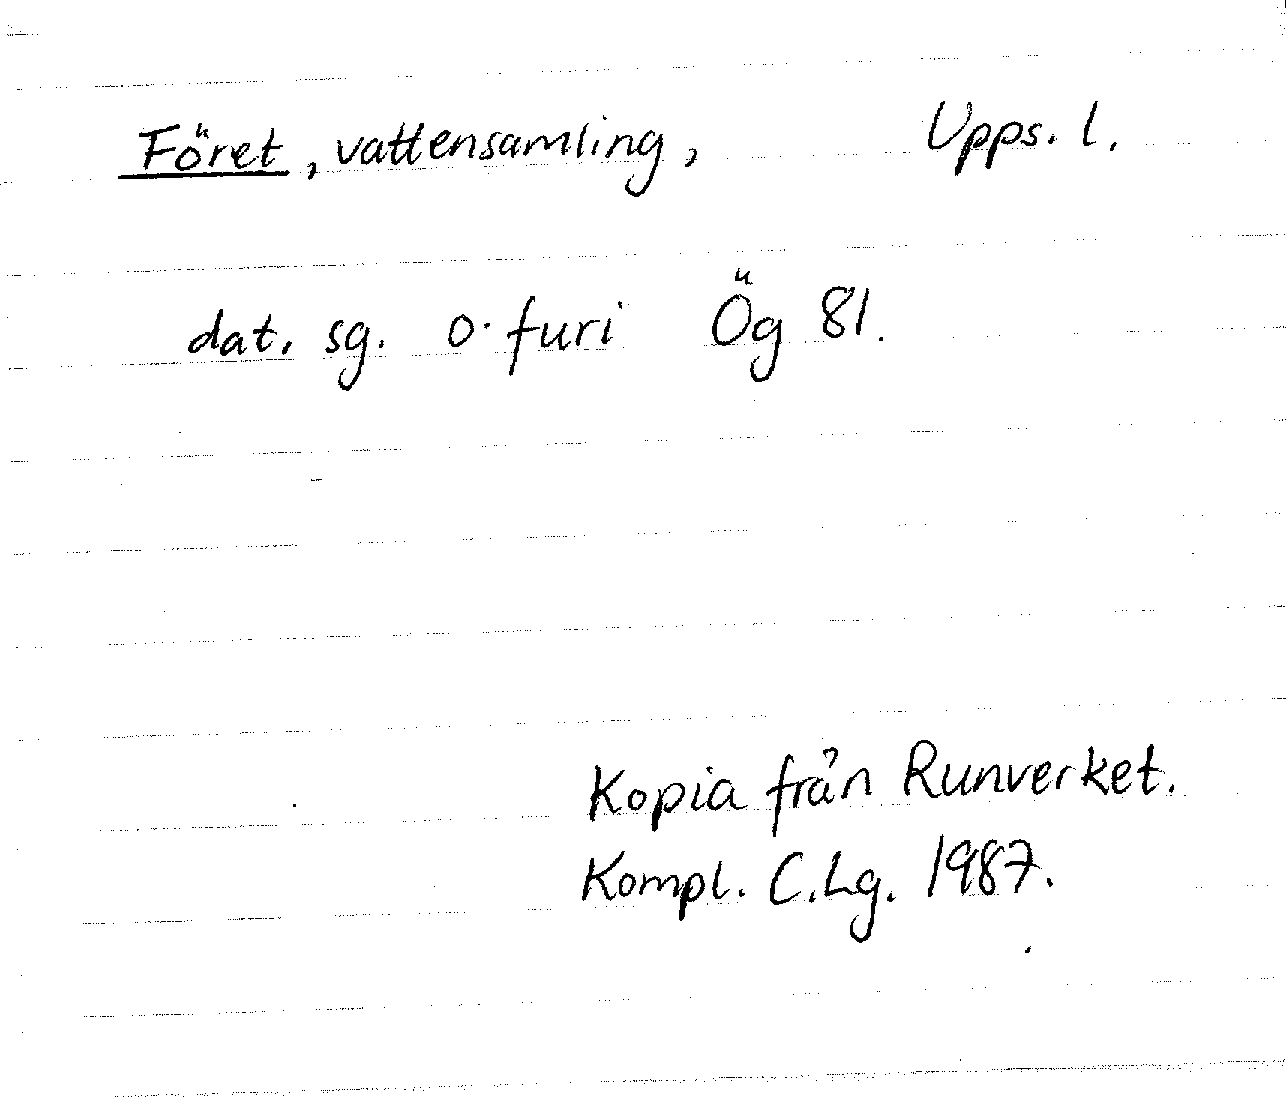 Föret, vattensamling, Upps. l.
dat. sg. o· furi Ög 81.
Kopia från Runverket.
Kompl. C.Lg. 1987.